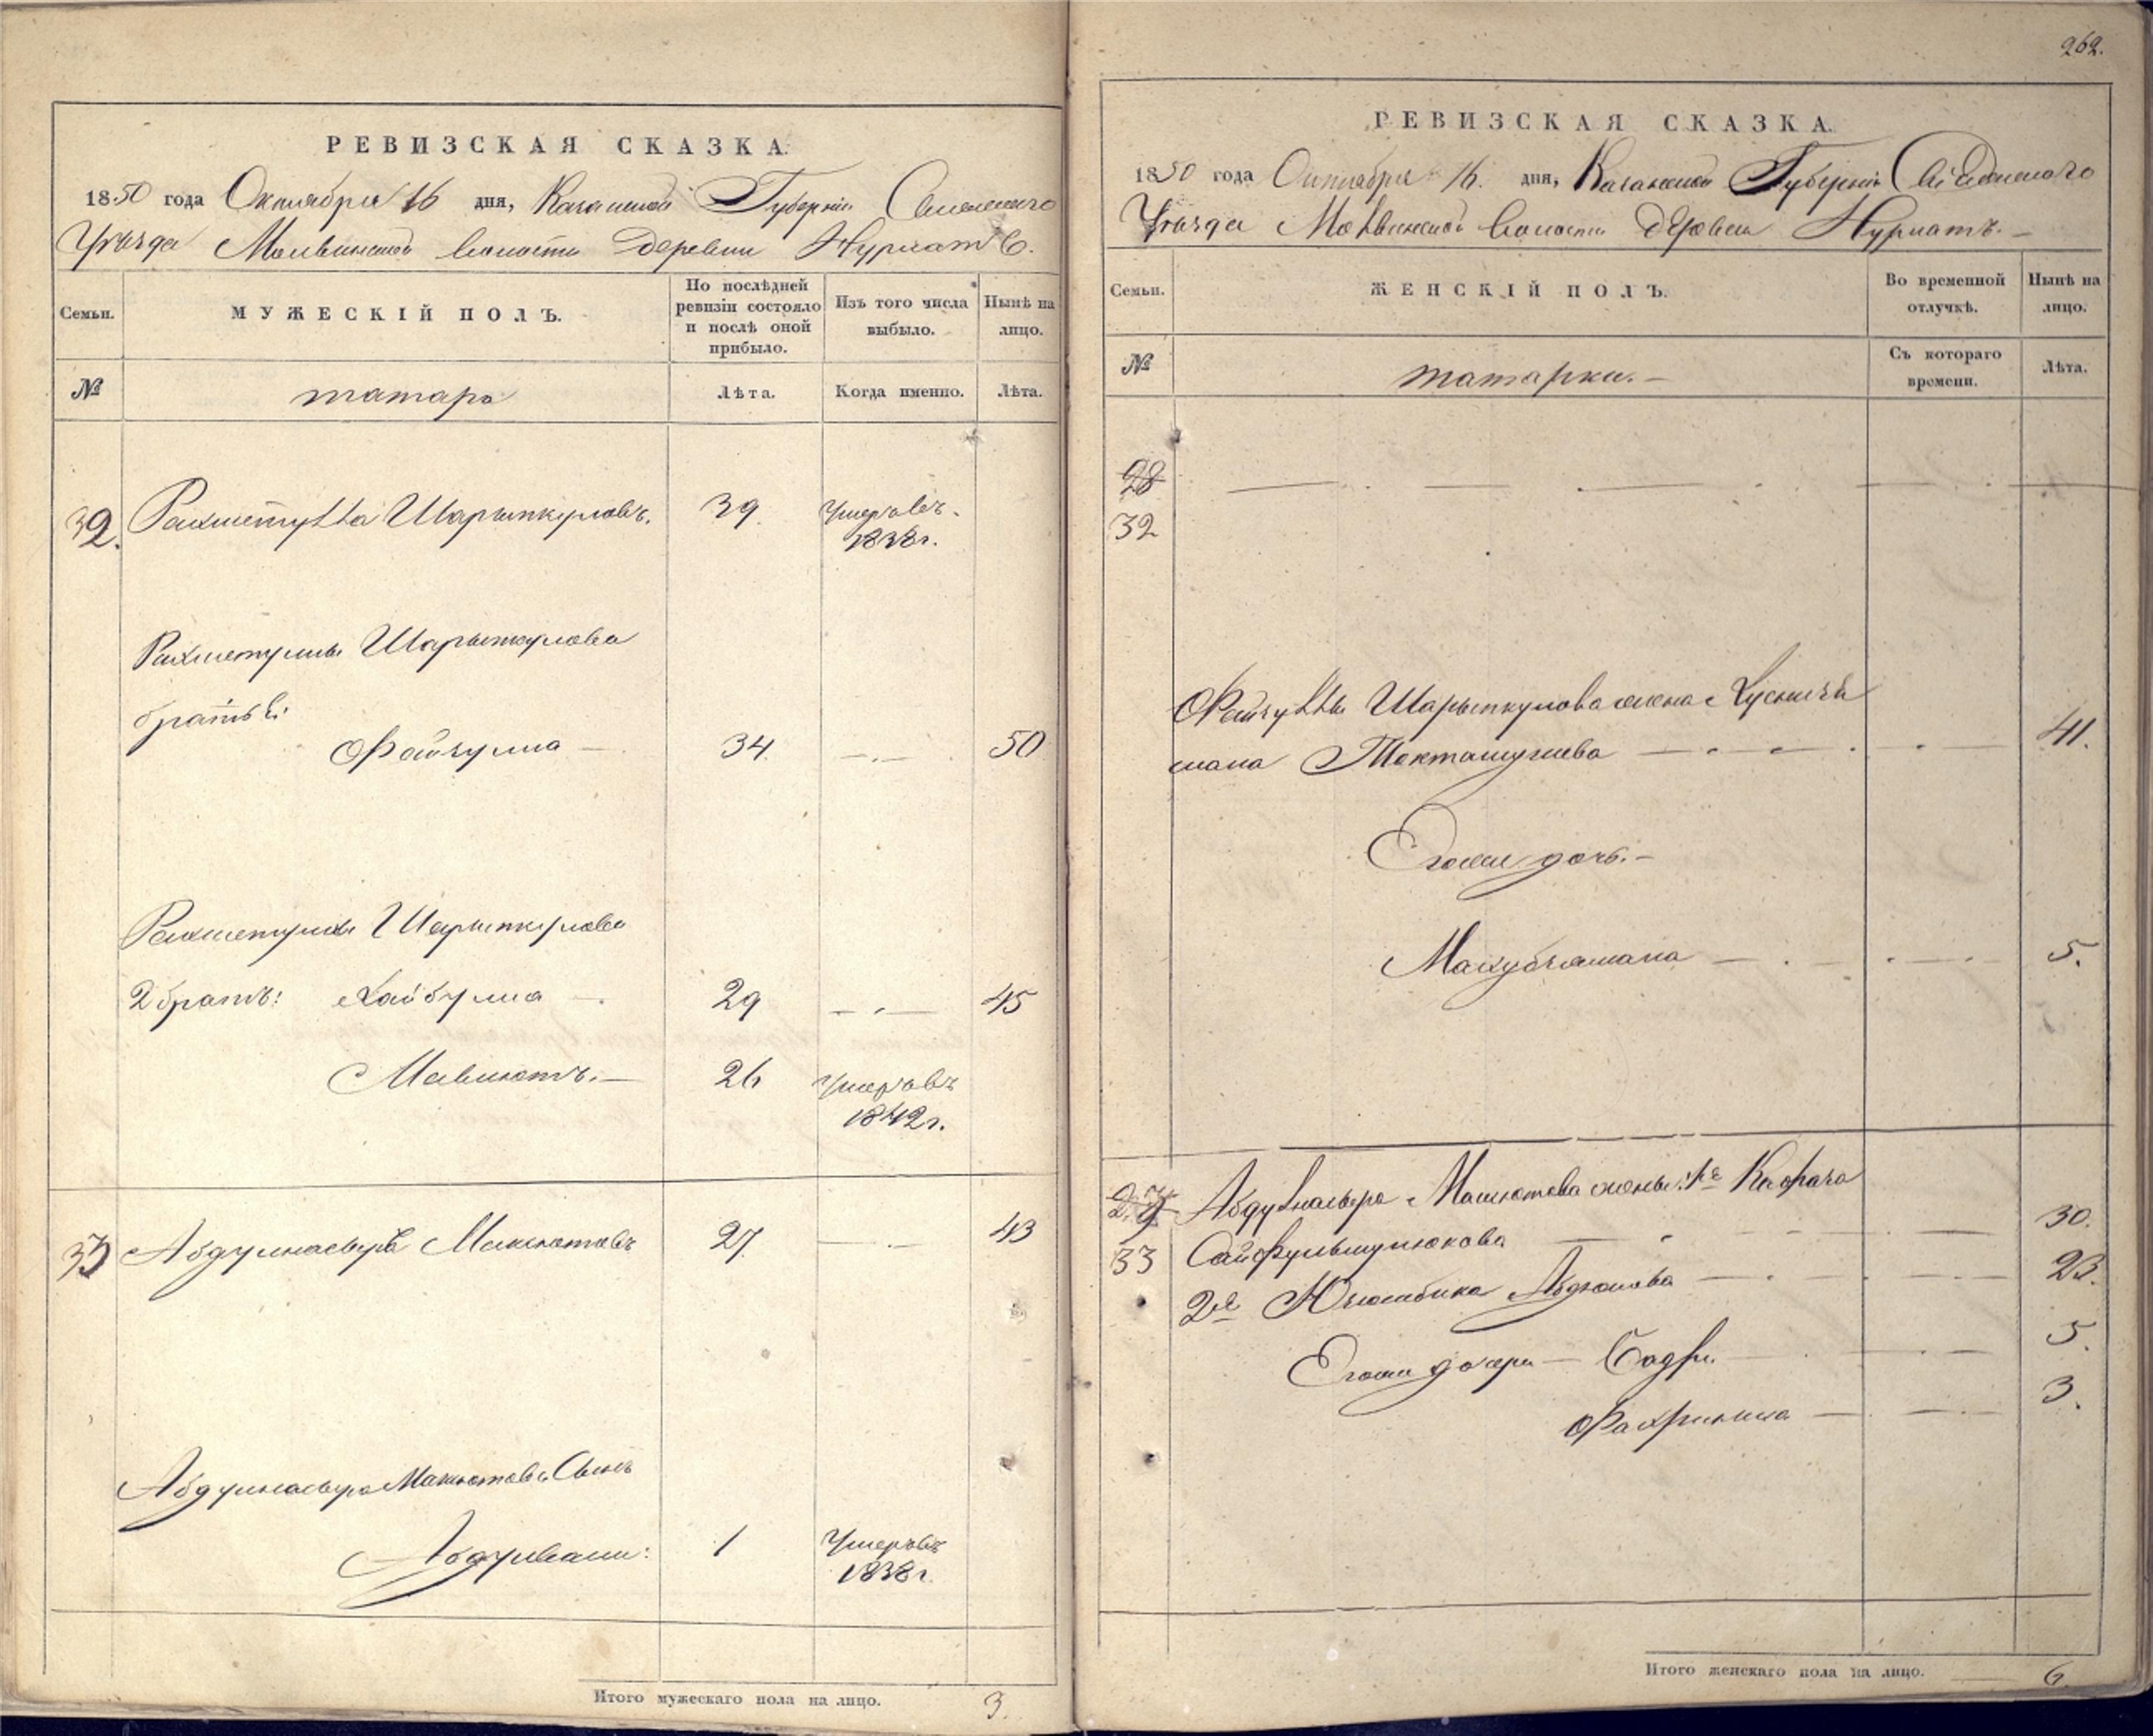 РЕВИЗСКАЯ СКАЗКА.
1850 года Октября 16 дня, Казанской Губернiи
Уѣзда Молвинской Волости деревни Нурлатъ.
Семьи.
МУЖЕСКIЙ ПОЛЪ.
По послѣдней ревизiи состояло и послѣ оной прибыло.
Изъ того числа выбыло.
Нынѣ на лицо.
№
татара
Лѣта.
Когда именно.
Лѣта.
32. Рахметулла Шарыпкуловъ. 39. Умеръ въ
1838г.
Рахметуллы Шарыпкулова
братья:
Файзулла — 34. — 50
Рахметуллы Шарыпкулова
2 братъ: Хайбулла — 29 — 45
Мавлютъ. — 26 Умеръ въ
1842г.
33 Абдулнасыръ Максютовъ 27. — 43
Абдулнасыра Максютова Сынъ
1 Умеръ въ
1838г.
Итого мужескаго пола на лицо. 3.
262.
РЕВИЗСКАЯ СКАЗКА.
1850 года Октября 16. дня, Казанской Губернiи
Уѣзда Молвинской Волости деревни Нурлатъ. —
Семьи.
ЖЕНСКIЙ ПОЛЪ.
Во временной отлучкѣ.
Нынѣ на лицо.
№
татарки. —
Съ котораго времени.
Лѣта.
28
32
Файзуллы Шарыпкулова жена
41.
Егоже дочь. —
5.
Абдулнасыра Максютова жены: 1я
33 30.
2я 23.
Егоже дочери — Бадри. — 5.
3.
Итого женскаго пола на лицо. 6.